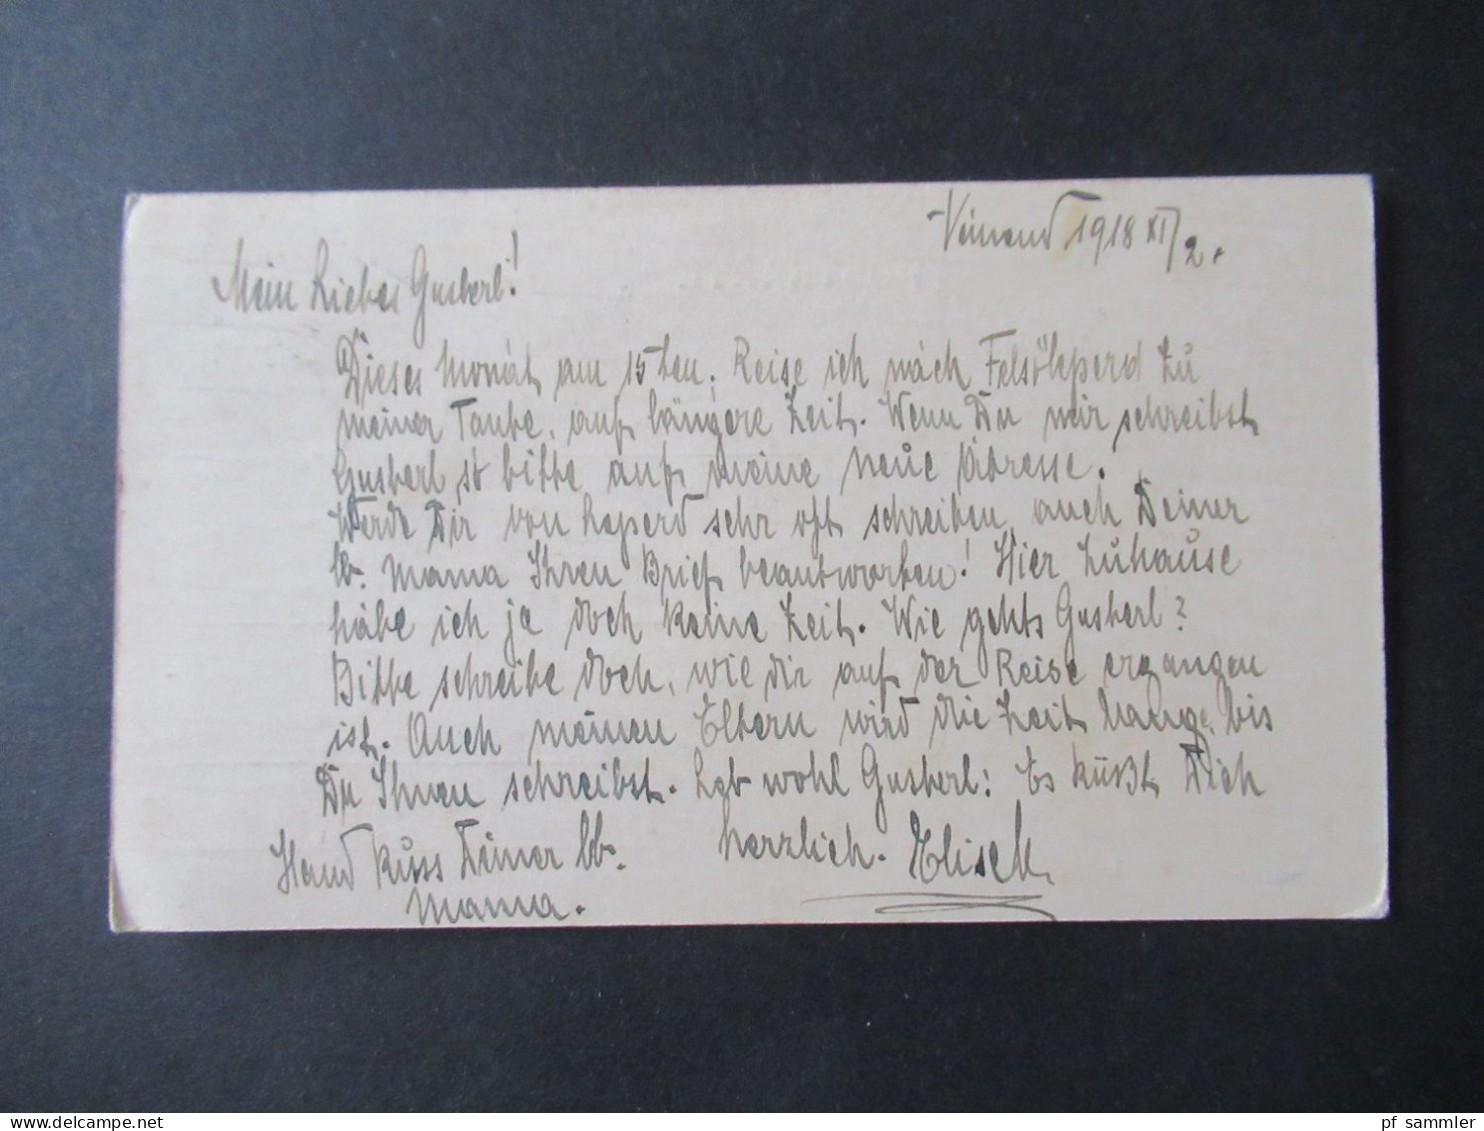 1918 XI/2.
Mein Liebes Gusterl!
Dieses Monat am 15ten. Reise ich nach Felsőleperd zu
meiner Tante, auf längere Zeit. Wenn Du mir schreibst
Gusterl so bitte auf meine neue Adresse.
Werde Dir von Leperd sehr oft schreiben auch Deiner
lb. Mama Ihren Brief beantworten! Hier zuhause
habe ich ja doch keine Zeit. Wie gehts Gusterl?
Bitte schreibe doch, wie dir auf der Reise ergangen
ist. Auch meinen Eltern wird die Zeit lange, bis
Du Ihnen schreibst. Leb wohl Gusterl: Es küßt Dich
Hand kuss Deiner lb. herzlich.
Mama.
pf sammler